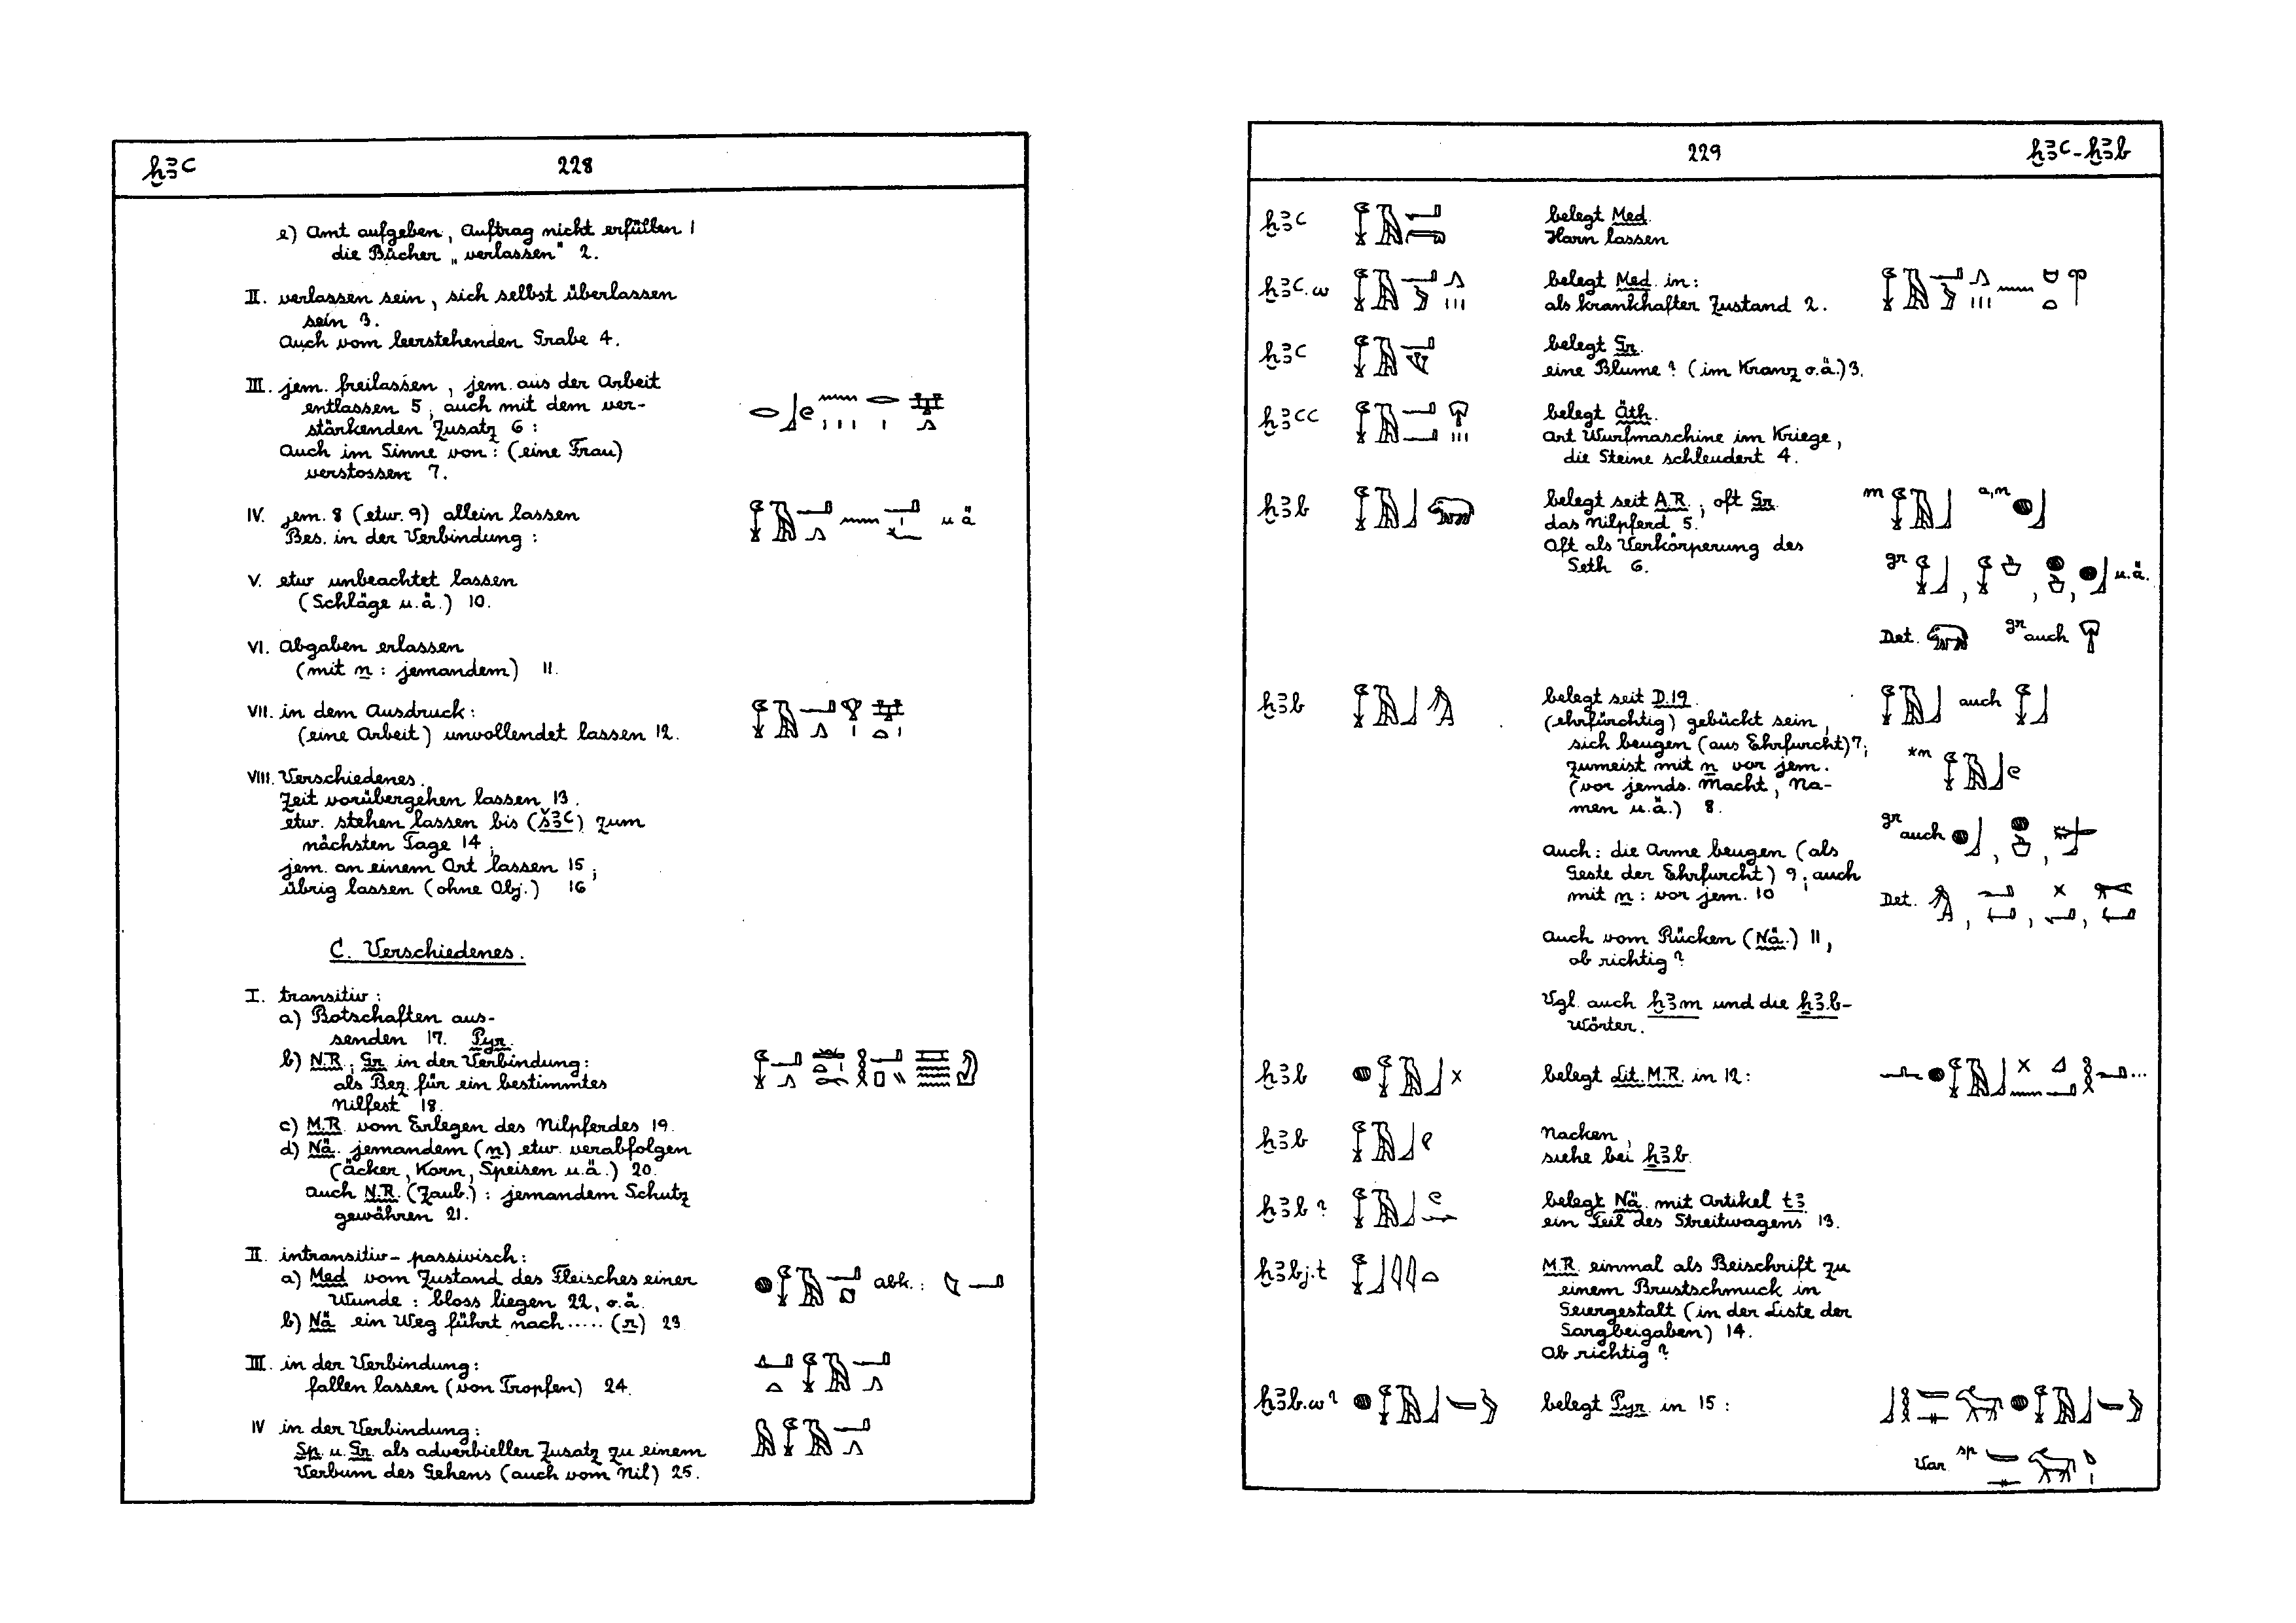 ḫꜣꜥ 228
e) Amt aufgeben, Auftrag nicht erfüllen 1
die Bücher „verlassen" 2.
II. verlassen sein, sich selbst überlassen
sein 3.
Auch vom leerstehenden Grabe 4.
III. jem. freilassen, jem. aus der Arbeit
entlassen 5, auch mit dem ver-
stärkenden Zusatz 6:
Auch im Sinne von: (eine Frau)
verstossen 7.
IV. jem. 8 (etw. 9) allein lassen
Bes. in der Verbindung: u ä
V. etw unbeachtet lassen
(Schläge u.ä.) 10.
VI. Abgaben erlassen
(mit n: jemandem) 11.
VII. in dem Ausdruck:
(eine Arbeit) unvollendet lassen 12.
VIII. Verschiedenes.
Zeit vorübergehen lassen 13.
etw. stehen lassen bis (šꜣꜥ) zum
nächsten Tage 14;
jem. an einem Ort lassen 15;
übrig lassen (ohne Obj.) 16
C. Verschiedenes.
I. transitiv:
a) Botschaften aus-
senden 17. Pyr.
b) N.R., Gr. in der Verbindung:
als Bez. für ein bestimmtes
Nilfest 18.
c) M.R. vom Erlegen des Nilpferdes 19.
d) Nä. jemandem (n) etw. verabfolgen
(Äcker, Korn, Speisen u.ä.) 20.
auch N.R. (Zaub.): jemandem Schutz
gewähren 21.
II. intransitiv-passivisch:
a) Med vom Zustand des Fleisches einer abk.:
Wunde: bloss liegen 22, o.ä.
b) Nä ein Weg führt nach ..... (r) 23
III. in der Verbindung:
fallen lassen (von Tropfen) 24.
IV in der Verbindung:
Sp. u. Gr. als adverbieller Zusatz zu einem
Verbum des Gehens (auch vom Nil) 25.
229 ḫꜣꜥ-ḫꜣb
ḫꜣꜥ belegt Med.
Harn lassen
ḫꜣꜥ.w belegt Med. in:
als krankhafter Zustand 2.
ḫꜣꜥ belegt Gr.
eine Blume? (im Kranz o.ä.) 3.
ḫꜣꜥꜥ belegt Äth.
Art Wurfmaschine im Kriege,
die Steine schleudert 4.
ḫꜣb belegt seit A.R., oft Gr. m a,m
das Nilpferd 5.
Oft als Verkörperung des
Seth 6. gr , , , u.ä.
Det. gr auch
ḫꜣb belegt seit D.19. auch
(ehrfürchtig) gebückt sein,
sich beugen (aus Ehrfurcht) 7; *m
zumeist mit n vor jem.
(vor jemds. Macht, Na-
men u.ä.) 8.
gr auch , ,
Auch: die Arme beugen (als
Geste der Ehrfurcht) 9; auch
mit n: vor jem. 10 Det. , , ,
Auch vom Rücken (Nä.) 11,
ob richtig?
Vgl. auch ḫꜣm und die ẖꜣb-
Wörter.
ḫꜣb belegt Lit. M.R. in 12: ...
ḫꜣb Nacken,
siehe bei ẖꜣb.
ḫꜣb? belegt Nä. mit Artikel tꜣ
ein Teil des Streitwagens 13.
ḫꜣbj.t M.R. einmal als Beischrift zu
einem Brustschmuck in
Geiergestalt (in der Liste der
Sargbeigaben) 14.
Ob richtig?
ḫꜣb.w? belegt Pyr. in 15:
Var. sp